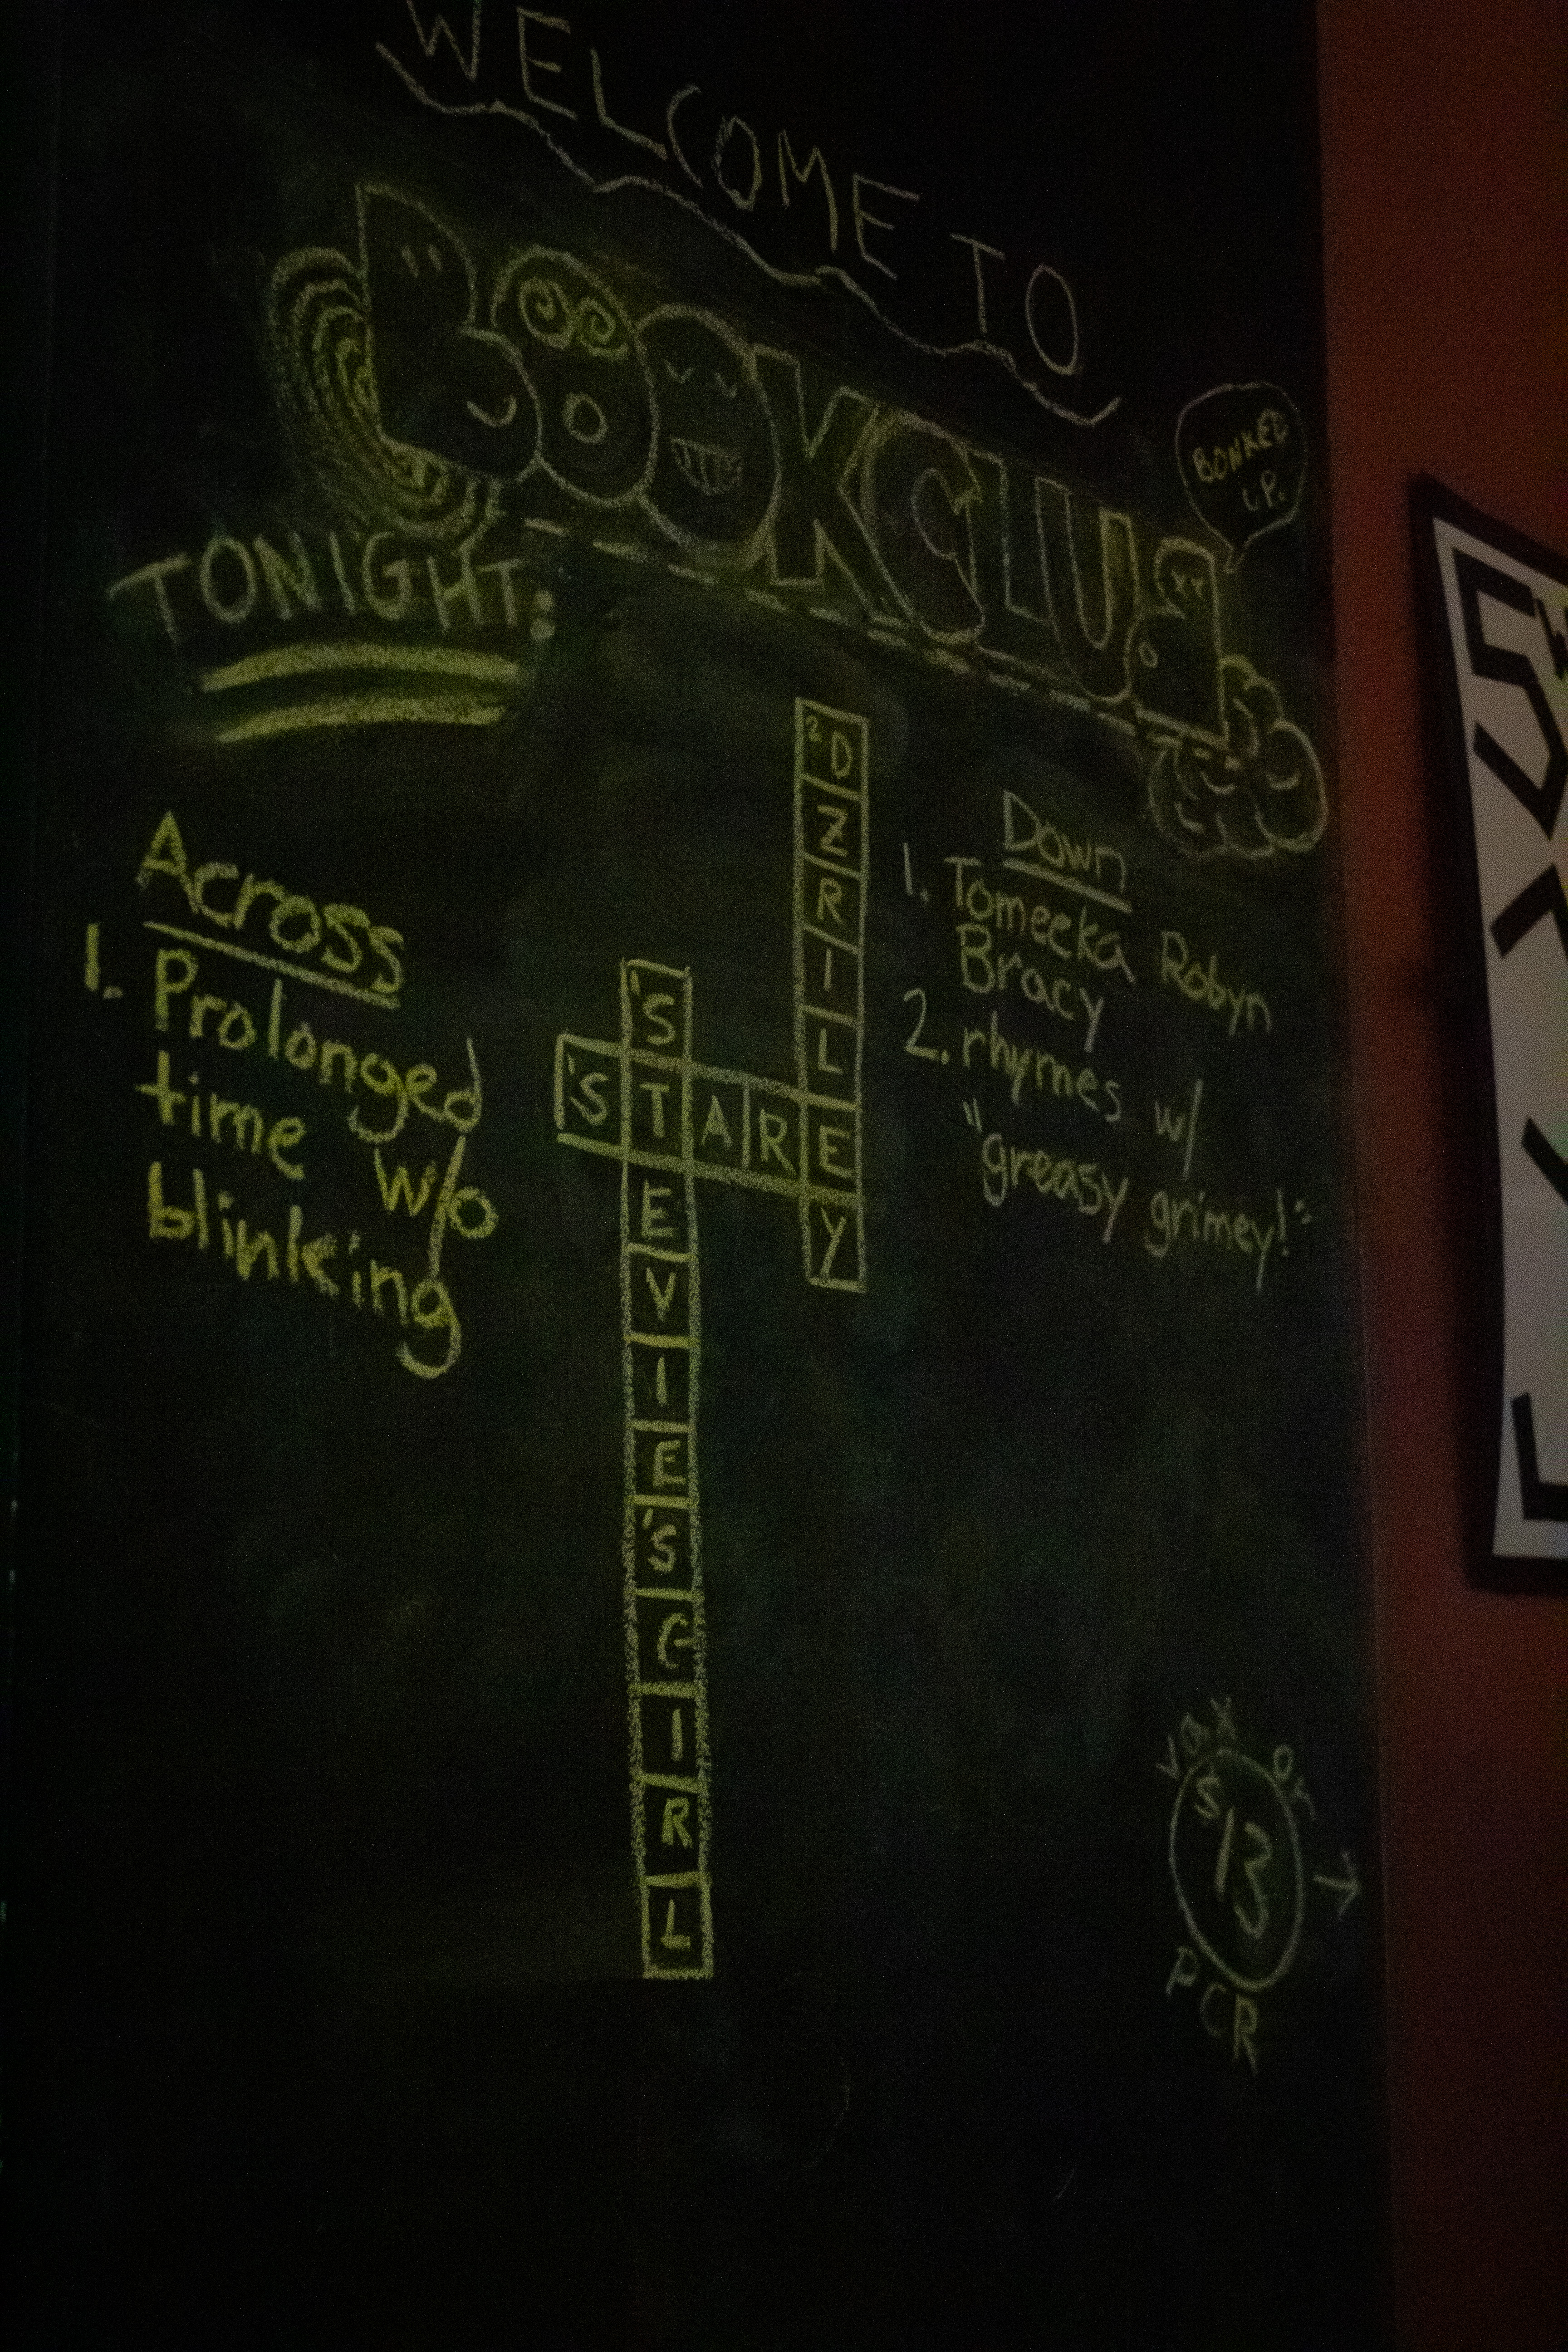 WELCOME TO
BOOKCLUB
BONKED
UP.
TONIGHT:
Across
1. Prolonged
time w/o
blinking
2D
Z
R
I
L
E
Y
1S
T
E
V
I
E
'S
G
I
R
L
1STARE
Down
1. Tomeeka Robyn
Bracy
2. rhymes w/
"greasy grimey!"
VAX or
$13
PCR